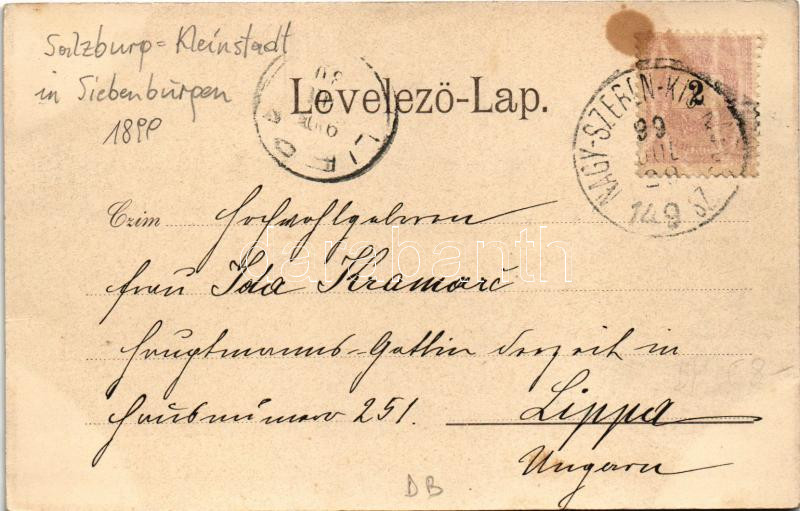 Salzburg=Kleinstadt
in Siebenbürgen
1899
Levelező-Lap.
LIPPA
2
NAGY-SZEBEN-KIS
99
JUL
149 SZ
Czim Hochwohlgeboren
Frau Ida Kramarć
Hauptmanns-Gattin derzeit in
Hausnúmero 251. Lippa
Ungarn
DB
darabanth